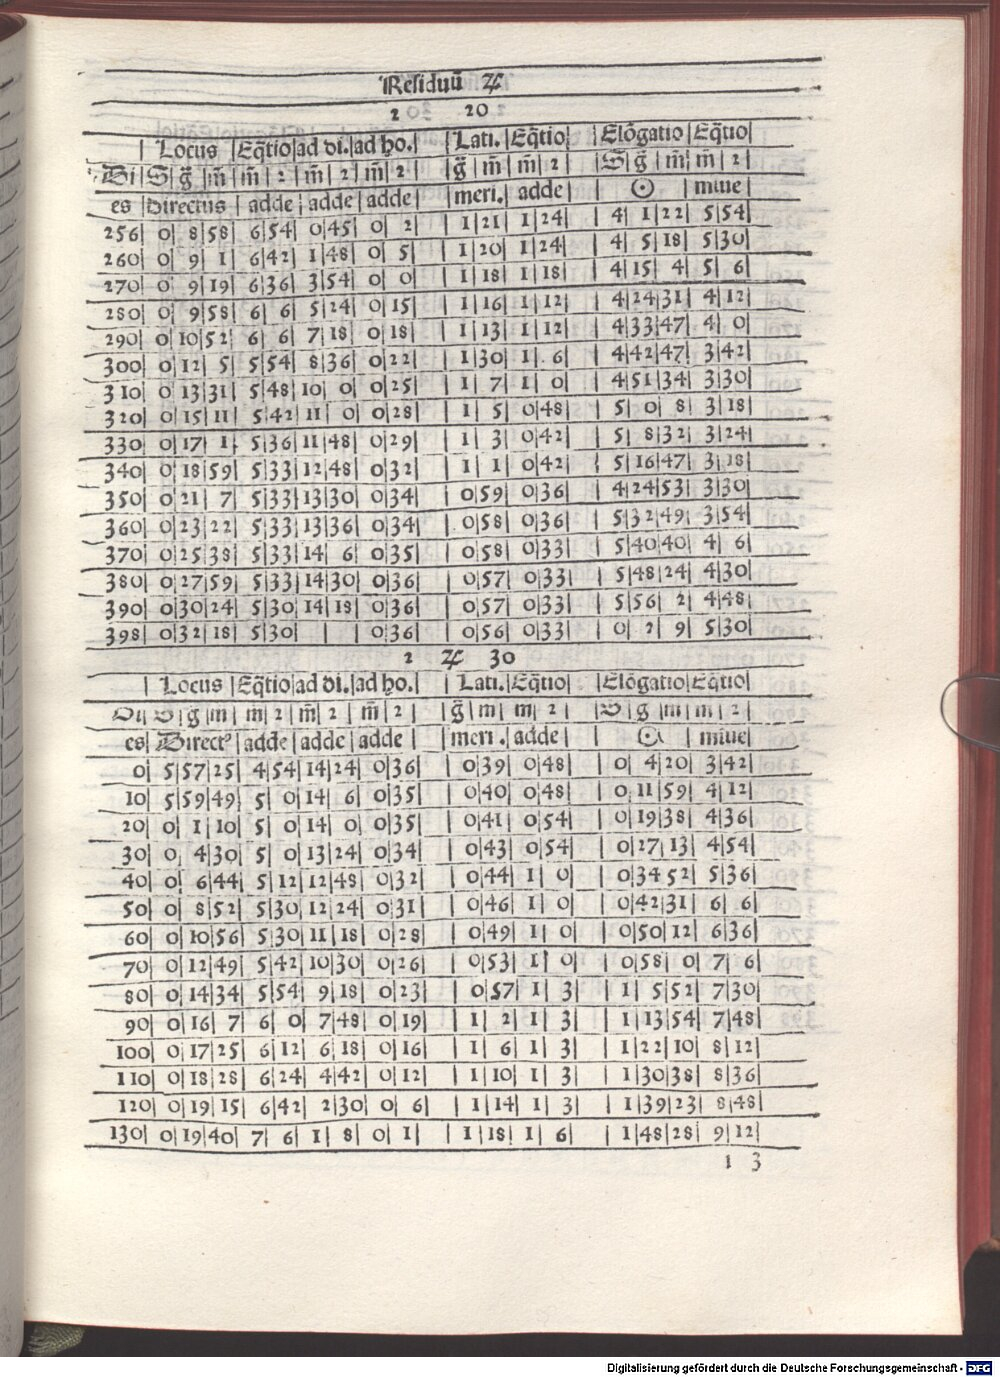 Residuū ♃
2 20
| Locus |Eq̄tio|ad di.|ad ho. | Lati.|Eq̄tio| | Elōgatio |Eq̄tio|
Di|S|g̃ |m̃ |m̃ | 2 |m̃ | 2 |m̃ | 2 | g̃ |m̃ |m̃ | 2 | | S| g̃ |m̃ |m̃ | 2 |
es |Directus | adde | adde | adde | |meri.| adde | | ☉ | miue|
256| 0| 8|58| 6|54| 0|45| 0| 2| | 1|21| 1|24| | 4| 1|22| 5|54|
260| 0| 9| 1| 6|42| 1|48| 0| 5| | 1|20| 1|24| | 4| 5|18| 5|30|
270| 0| 9|19| 6|36| 3|54| 0| 0| | 1|18| 1|18| | 4|15| 4| 5| 6|
280| 0| 9|58| 6| 6| 5|24| 0|15| | 1|16| 1|12| | 4|24|31| 4|12|
290| 0|10|52| 6| 6| 7|18| 0|18| | 1|13| 1|12| | 4|33|47| 4| 0|
300| 0|12| 5| 5|54| 8|36| 0|22| | 1|30| 1| 6| | 4|42|47| 3|42|
310| 0|13|31| 5|48|10| 0| 0|25| | 1| 7| 1| 0| | 4|51|34| 3|30|
320| 0|15|11| 5|42|11| 0| 0|28| | 1| 5| 0|48| | 5| 0| 8| 3|18|
330| 0|17| 1| 5|36|11|48| 0|29| | 1| 3| 0|42| | 5| 8|32| 3|24|
340| 0|18|59| 5|33|12|48| 0|32| | 1| 1| 0|42| | 5|16|47| 3|18|
350| 0|21| 7| 5|33|13|30| 0|34| | 0|59| 0|36| | 4|24|53| 3|30|
360| 0|23|22| 5|33|13|36| 0|34| | 0|58| 0|36| | 5|32|49| 3|54|
370| 0|25|38| 5|33|14| 6| 0|35| | 0|58| 0|33| | 5|40|40| 4| 6|
380| 0|27|59| 5|33|14|30| 0|36| | 0|57| 0|33| | 5|48|24| 4|30|
390| 0|30|24| 5|30|14|18| 0|36| | 0|57| 0|33| | 5|56| 2| 4|48|
398| 0|32|18| 5|30| | | 0|36| | 0|56| 0|33| | 0| 2| 9| 5|30|
2 ♃ 30
| Locus |Eq̄tio|ad di.|ad ho.| | Lati.|Eq̄tio| |Elōgatio|Eq̄tio|
Di| S |g̃ |m | m̃ | 2 |m̃ | 2 | m̃ | 2 | | g̃ |m | m | 2 | | S |g̃ |m |m | 2 |
es| Direct⁹ |adde |adde | adde | |meri.|adde | | ☉ | miue|
0| 5|57|25| 4|54|14|24| 0|36| | 0|39| 0|48| | 0| 4|20| 3|42|
10| 5|59|49| 5| 0|14| 6| 0|35| | 0|40| 0|48| | 0|11|59| 4|12|
20| 0| 1|10| 5| 0|14| 0| 0|35| | 0|41| 0|54| | 0|19|38| 4|36|
30| 0| 4|30| 5| 0|13|24| 0|34| | 0|43| 0|54| | 0|27|13| 4|54|
40| 0| 6|44| 5|12|12|48| 0|32| | 0|44| 1| 0| | 0|34 52| 5|36|
50| 0| 8|52| 5|30|12|24| 0|31| | 0|46| 1| 0| | 0|42|31| 6| 6|
60| 0|10|56| 5|30|11|18| 0|28| | 0|49| 1| 0| | 0|50|12| 6|36|
70| 0|12|49| 5|42|10|30| 0|26| | 0|53| 1| 0| | 0|58| 0| 7| 6|
80| 0|14|34| 5|54| 9|18| 0|23| | 0|57| 1| 3| | 1| 5|52| 7|30|
90| 0|16| 7| 6| 0| 7|48| 0|19| | 1| 2| 1| 3| | 1|13|54| 7|48|
100| 0|17|25| 6|12| 6|18| 0|16| | 1| 6| 1| 3| | 1|22|10| 8|12|
110| 0|18|28| 6|24| 4|42| 0|12| | 1|10| 1| 3| | 1|30|38| 8|36|
120| 0|19|15| 6|42| 2|30| 0| 6| | 1|14| 1| 3| | 1|39|23| 8|48|
130| 0|19|40| 7| 6| 1| 8| 0| 1| | 1|18| 1| 6| | 1|48|28| 9|12|
1 3
Digitalisierung gefördert durch die Deutsche Forschungsgemeinschaft - DFG